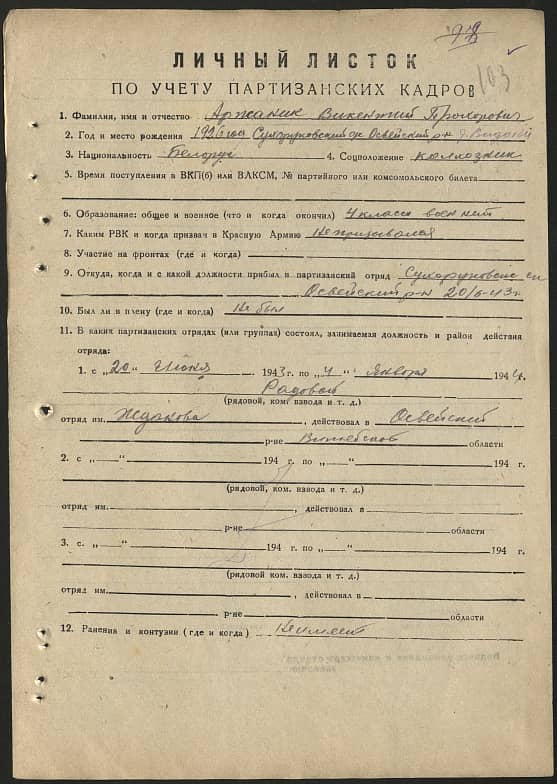 103
ЛИЧНЫЙ ЛИСТОК
ПО УЧЕТУ ПАРТИЗАНСКИХ КАДРОВ
1. Фамилия, имя и отчество Аржаник Викентий Прохорович
2. Год и место рождения Освейский р-н
3. Национальность Белорус 4. Соцположение колхозник
5. Время поступления в ВКП(б) или ВЛКСМ, № партийного или комсомольского билета
6. Образование: общее и военное (что и когда окончил) 4 класса воен нет
7. Каким РВК и когда призван в Красную Армию Не призывался
8. Участие на фронтах (где и когда)
9. Откуда, когда и с какой должности прибыл в партизанский отряд
Освейский р-н 20/6-43г.
10. Был ли в плену (где и когда) Не был
11. В каких партизанских отрядах (или группах) состоял, занимаемая должность и район действия
отряда:
1. с „20“ Июня 1943 г. по „4“ января 1944 г.
Рядовой
(рядовой, ком. взвода и т. д.)
отряд им. , действовал в Освейский
р-не Витебской области
2. с „ “ 194 г. по „ “ 194 г.
(рядовой, ком. взвода и т. д.)
отряд им. , действовал в
р-не области
3. с. „ “ 194 г. по „ “ 194 г.
(рядовой ком. взвода и т. д.)
отряд им. , действовал в
р-не области
12. Ранения и контузии (где и когда) Не имеет